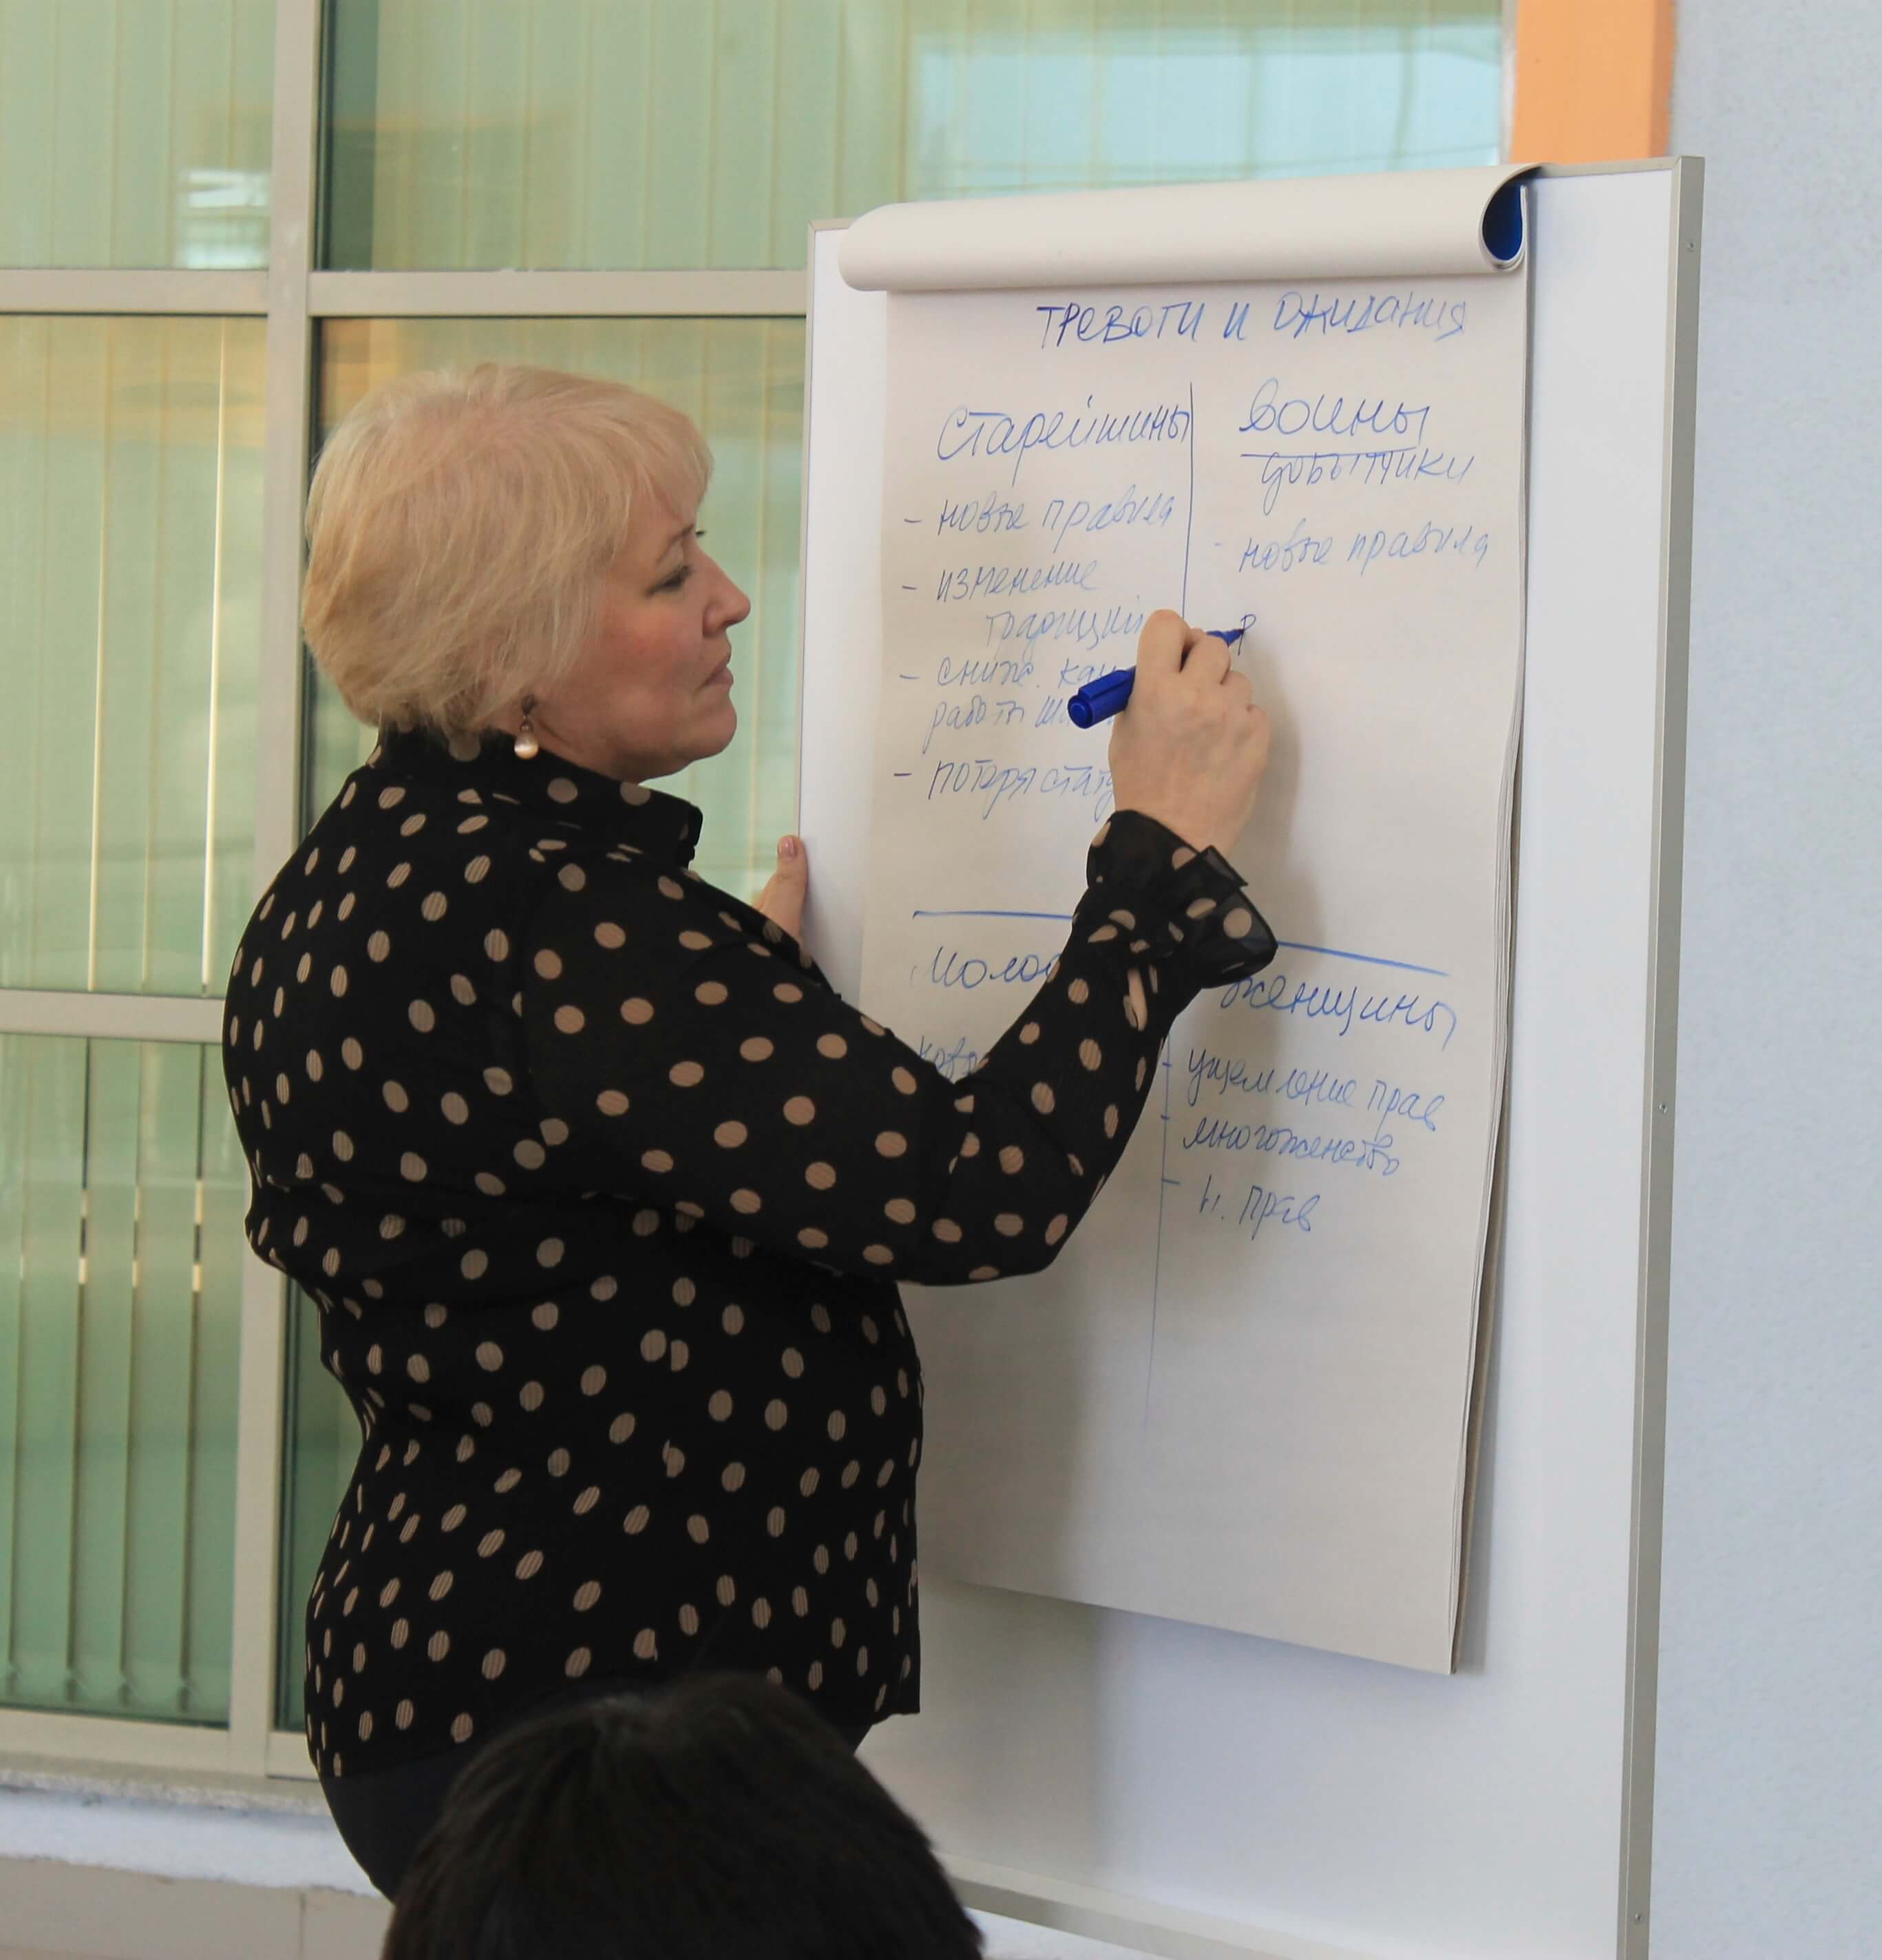 ТРЕВОГИ И ОЖИДАНИЯ
Старейшины
- новые правила
- изменение
традиций
- сниж.
работы
- потеря
Воины
добытчики
- новые правила
Р
женщины
- ущемление прав
- многоженство
- н. прав